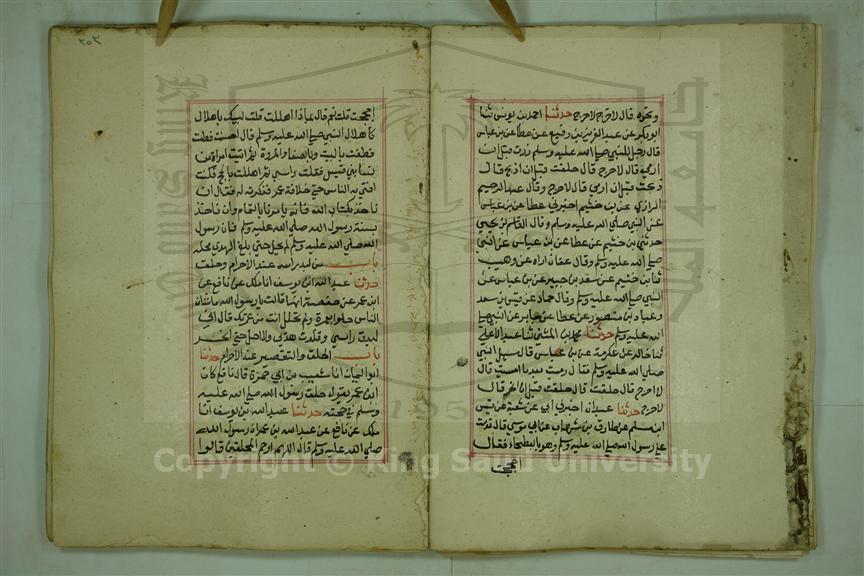 ونحوه قال لا حرج لا حرج حدثنا احمد بن يونس ثنا
ابو بكر عن عبد العزيز بن رفيع عن عطا عن بن عباس
قال رجل للنبي صلي الله عليه وسلم زرت قبل ان
ارمي قال لا حرج قال حلقت قبل ان اذبح قال
ذبحت قبل ان ارمي قال لا حرج وقال عبد الرحيم
الرازي عن بن خثيم اخبرني عطا عن بن عباس
عن النبي صلي الله عليه وسلم وقال القاسم بن يحيي
حدثني بن خثيم عن عطا عن بن عباس عن النبي
صلي الله عليه وسلم وقال عفان اراه عن وهيب
ثنا بن خثيم عن سعيد بن جبير عن بن عباس عن
النبي صلي الله عليه وسلم وقال حماد عن قيس بن سعد
وعباد بن منصور عن عطا عن جابر عن النبي صلي
الله عليه وسلم حدثنا محمد بن المثني ثنا عبد الاعلي
ثنا خالد عن عكرمة عن بن عباس قال سيل النبي
صلي الله عليه وسلم فقال رميت بعد ما امسيت قال
لا حرج قال حلقت قبل ان انحر قال
لا حرج حدثنا عبدان اخبرني ابي عن شعبة عن قيس
ابن مسلم عن طارق بن شهاب عن ابي موسي قال قدمت
علي رسول الله صلي الله عليه وسلم وهو بالبطحاء فقال
احججت
٢٥٣
احججت قلت نعم قال بماذا اهللت قلت لبيك باهلال
كاهلال النبي صلي الله عليه وسلم قال احسنت
فطفت بالبيت وبالصفا والمروة ثم اتيت امراة من
نسا بني قيس ففلت راسي ثم اهللت بالحج فكنت
افتي به الناس حتي خلافة عمر فذكرته له فقال ان
ناخذ بكتاب الله فانه يامرنا بالتمام وان ناخذ
بسنة رسول الله صلي الله عليه وسلم فان رسول
الله صلي الله عليه وسلم لم يحل حتي بلغ الهدي محله
باب من لبد راسه عند الاحرام وحلق
حدثنا عبد الله ابن يوسف انا ملك عن نافع عن
ابن عمر عن حفصة انها قالت يا رسول الله ما شان
الناس حلوا بعمرة ولم تحلل انت من عمرتك قال اني
لبدت راسي وقلدت هديي ولا احل حتي انحر
باب الحلق والتقصير عند الاحرام حدثنا
ابو اليمان انا شعيب بن ابي حمزة قال نافع كان
ابن عمر يقول حلق رسول الله صلي الله عليه
وسلم في حجته حدثنا عبد الله بن يوسف انا
ملك عن نافع عن عبد الله بن عمر ان رسول الله
صلي الله عليه وسلم قال اللهم ارحم المحلقين قالوا
Copyright © King Saud University